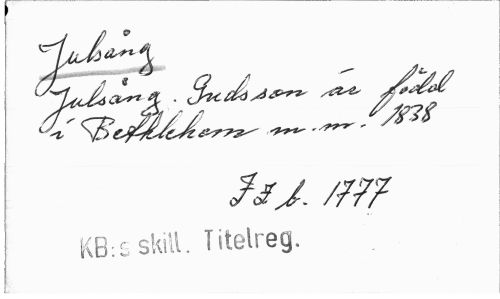 Julsång
Julsång. Gudsson är född
i Bethlehem m.m. 1838
b. 1777
KB:s skill. Titelreg.